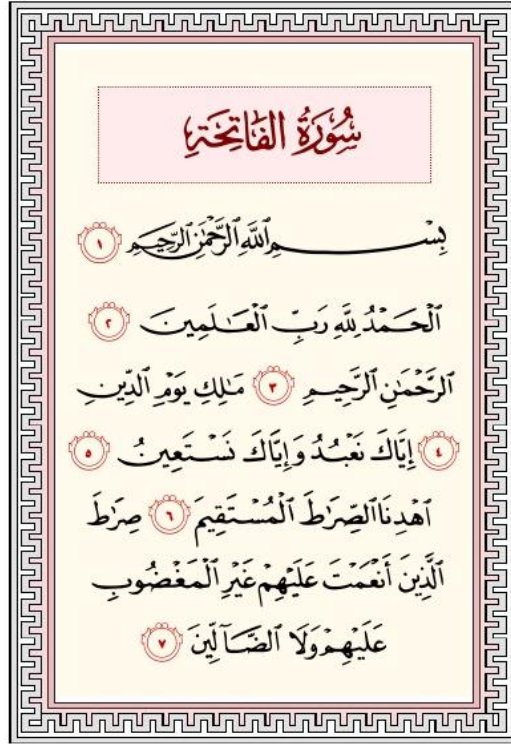 سُورَةُ الفَاتِحَةِ
بِسْمِ ٱللَّهِ ٱلرَّحْمَٰنِ ٱلرَّحِيمِ ١
ٱلْحَمْدُ لِلَّهِ رَبِّ ٱلْعَٰلَمِينَ ٢
ٱلرَّحْمَٰنِ ٱلرَّحِيمِ ٣ مَٰلِكِ يَوْمِ ٱلدِّينِ
٤ إِيَّاكَ نَعْبُدُ وَإِيَّاكَ نَسْتَعِينُ ٥
ٱهْدِنَا ٱلصِّرَٰطَ ٱلْمُسْتَقِيمَ ٦ صِرَٰطَ
ٱلَّذِينَ أَنْعَمْتَ عَلَيْهِمْ غَيْرِ ٱلْمَغْضُوبِ
عَلَيْهِمْ وَلَا ٱلضَّآلِّينَ ٧